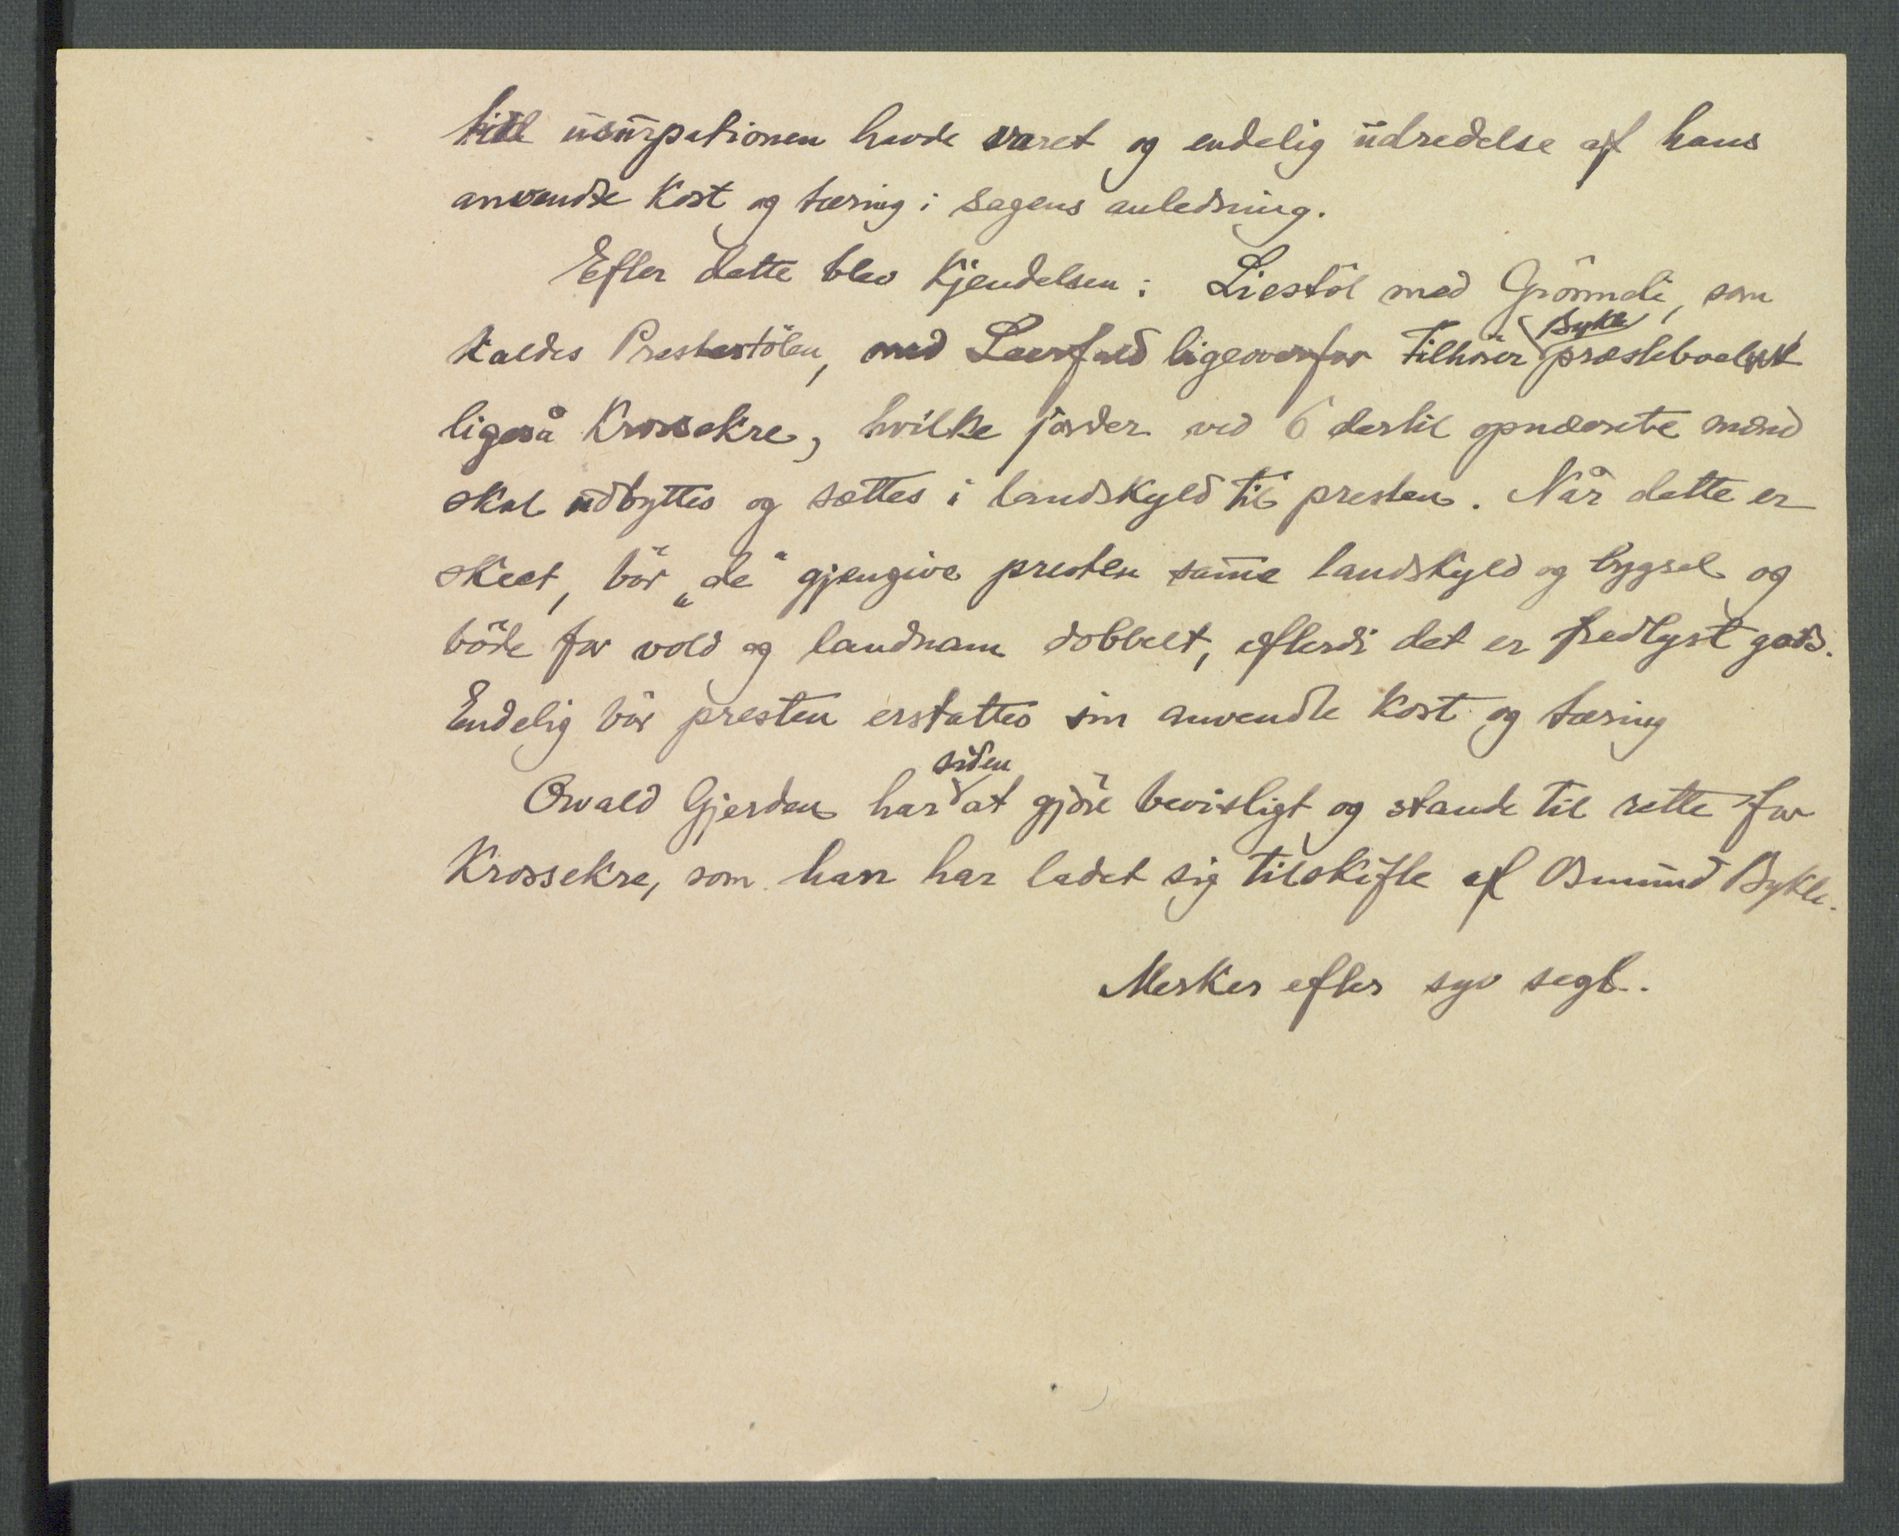 tid usurpationen havde varet og endelig udredelse af hans
anvendte Kost og tæring i sagens anledning.
Efter dette blev Kjendelsen: Liestöl med Grönndi, som
Kaldes Prestestölen, med Leerfald ligeoverfor tilhörer Bykle præstebordet
ligeså Krossekre, hvilke jorder ved 6 dertil opnævnte mænd
skal udbyttes og sættes i landskyld til presten. Når dette er
skeet, bör „de“ gjengive presten samme landskyld og bygsel og
böde for vold og landnam dobbelt, efterdi det er fredlyst gods.
Endelig bör presten erstattes sin anvendte Kost og tæring
Orvald Gjerden har siden at gjöre bevisligt og stande til rette for
Krossekre, som han har ladet sig tilskifte af Osmund Bykle.
Merker efter syv segl.